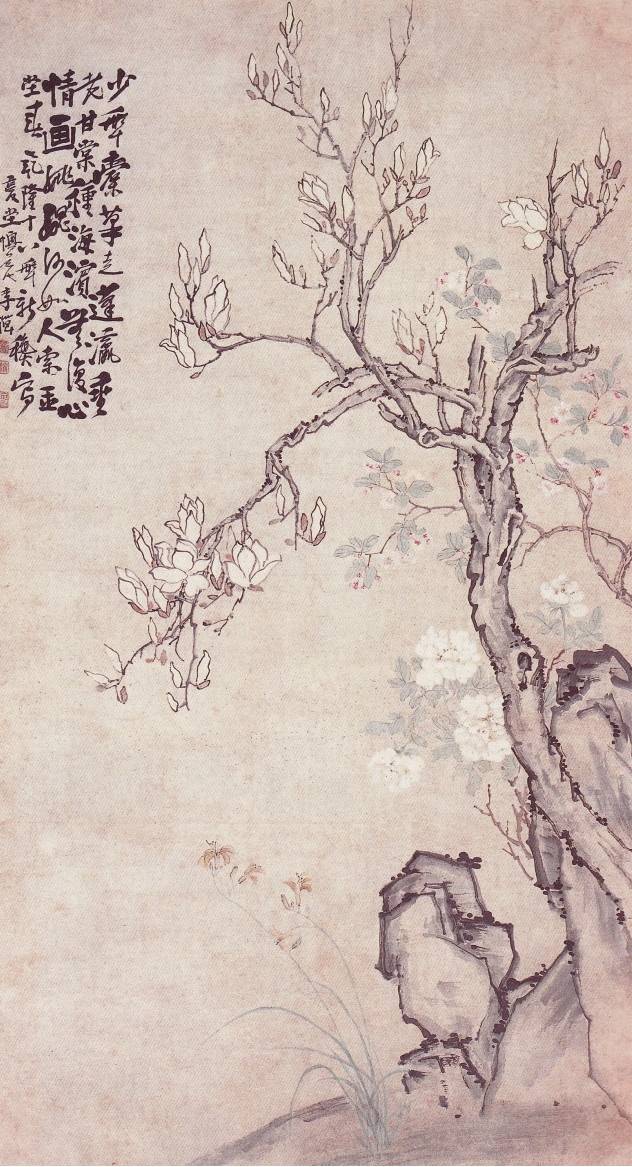 少年橐草走蓬瀛垂
老甘棠種海濱無復心
情画姚魏何如人索玉
堂春乾隆十八年新穐寫
復堂懊道人李鱓